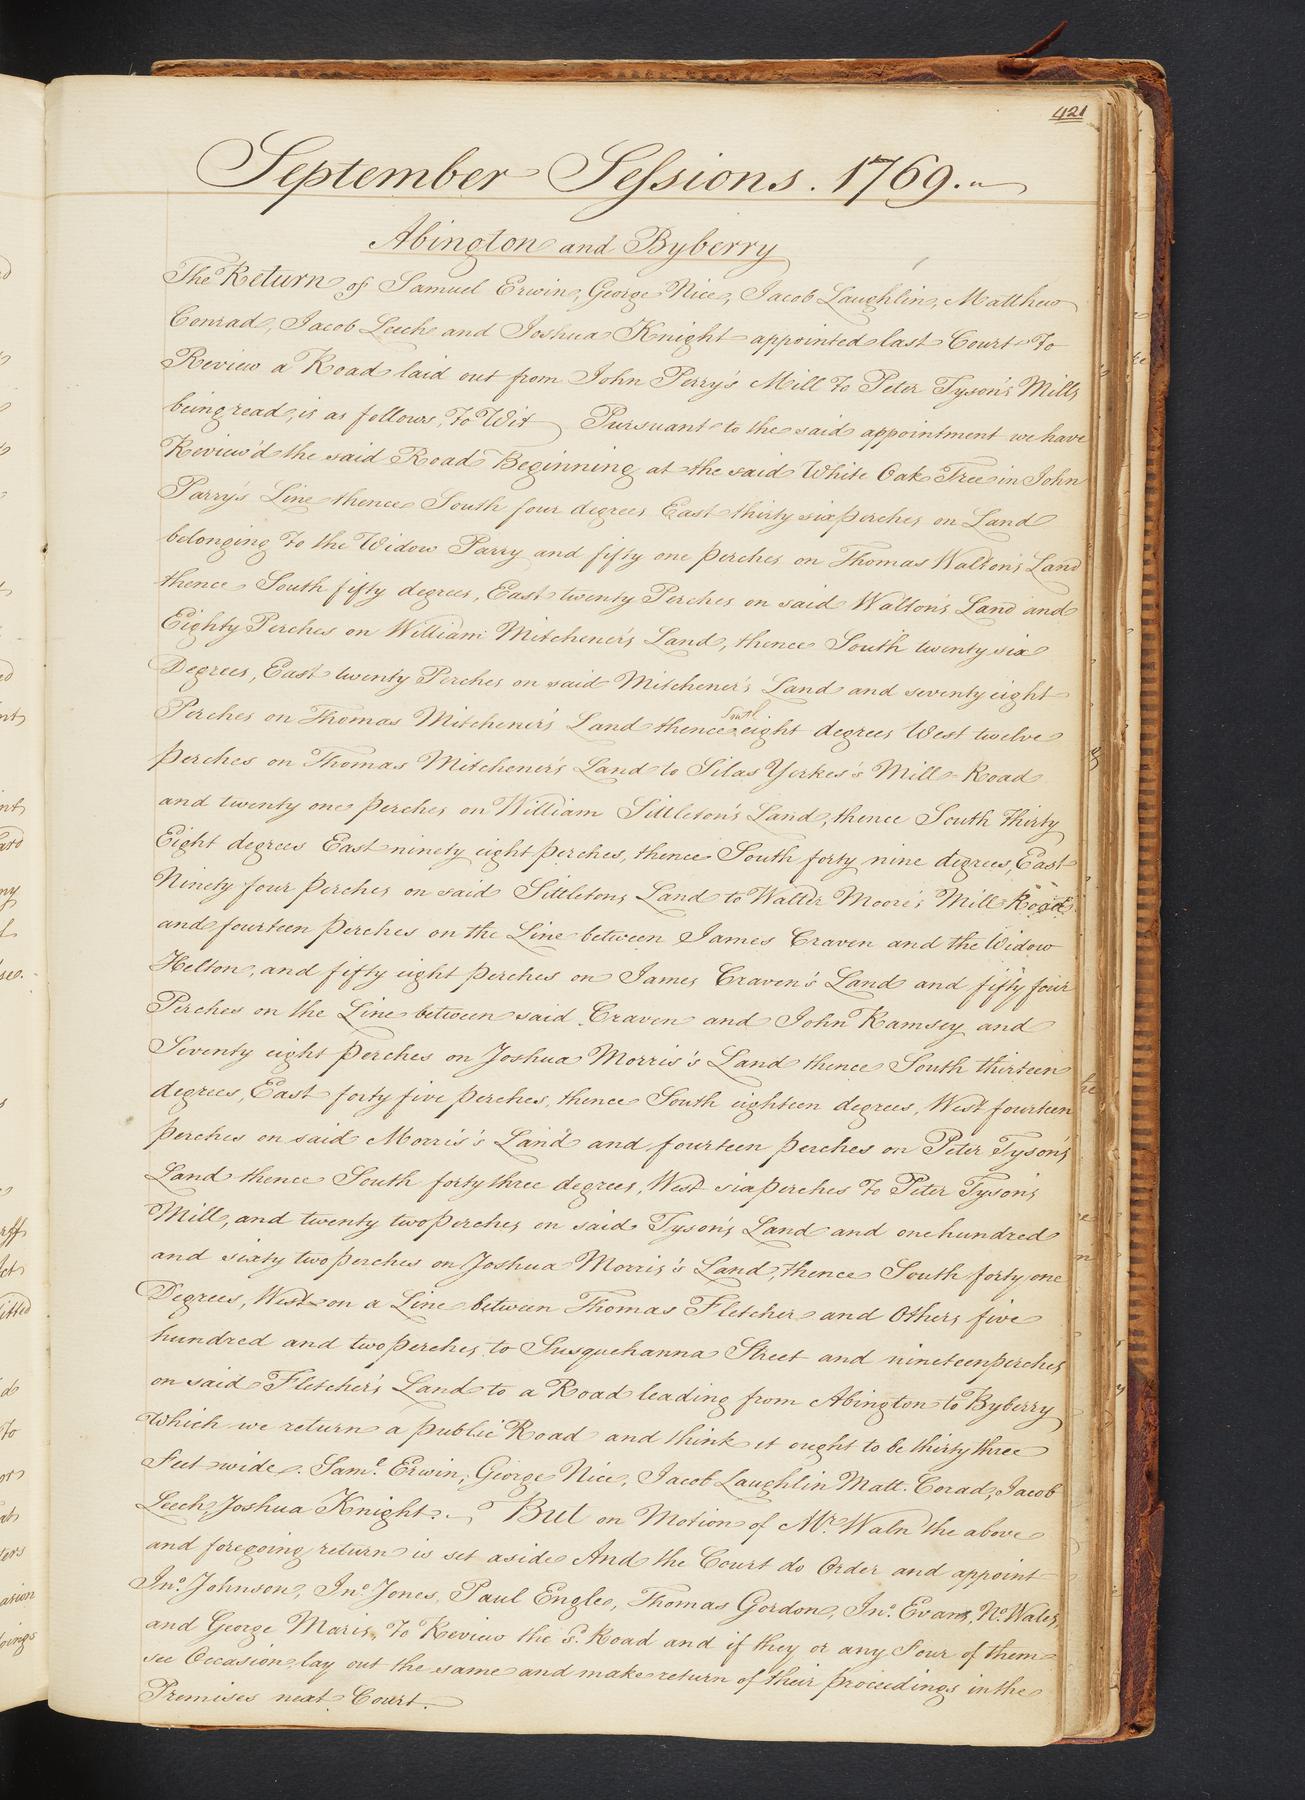 421
September Sessions. 1769.
Abington and Byberry
The Return of Samuel Erwin, George Nice, Jacob Laughlin, Matthew
Conrad, Jacob Leech and Joshua Knight appointed last Court To
Review a Road laid out from John Perry's Mill To Peter Tyson's Mills
being read, is as follows, To Wit Pursuant to the said appointment we have
Review'd the said Road Beginning at the said White Oak Tree in John
Parrys Line thence South four degrees East thirty six perches on Land
belonging To the Widow Parry and fifty one perches on Thomas Walton's Land
thence South fifty degrees, East twenty Perches on said Walton's Land and
Eighty Perches on William Mitchener's Land, thence South twenty six
Degrees, East twenty Perches on said Mitchener's Land and seventy eight
Perches on Thomas Mitchener's Land thence South eight degrees West twelve
perches on Thomas Mitchener's Land to Silas Yerkes's Mill-Road
and twenty one perches on William Sittleton's Land, thence South Thirty
Eight degrees East ninety eight perches, thence South forty nine degrees, East
Ninety four perches on said Sittletons Land to Walter Moore's Mill-Road
and fourteen perches on the Line between James Craven and the Widow
Helton, and fifty eight perches on James Craven's Land and fifty four
Perches on the Line between said Craven and John Ramsey and
Seventy eight perches on Joshua Morris's Land thence South thirteen
degrees, East forty five perches, thence South eighteen degrees, West fourteen
perches on said Morris's Land and fourteen perches on Peter Tyson's
Land thence South forty three degrees, West six perches To Peter Tyson's
Mill, and twenty two perches on said Tyson's Land and one hundred
and sixty two perches on Joshua Morris's Land, thence South forty one
Degrees, West on a Line between Thomas Fletcher and Others five
hundred and two perches to Susquehanna Street and nineteen perches
on said Fletcher's Land to a Road leading from Abington to Byberry
which we return a public Road and think it ought to be thirty three
Feet wide. Saml. Erwin, George Nice, Jacob Laughlin Matt. Corad, Jacob
Leech, Joshua Knight. But on Motion of Mr. Waln the above
and foregoing return is set aside And the Court do Order and appoint
Jno. Johnson, Jno. Jones, Paul Engle, Thomas Gordon, Jno. Evans, No. Wales,
and George Maris, To Review the s. Road and if they or any Four of them
see Occasion, lay out the same and make return of their proceedings in the
Premises next Court.